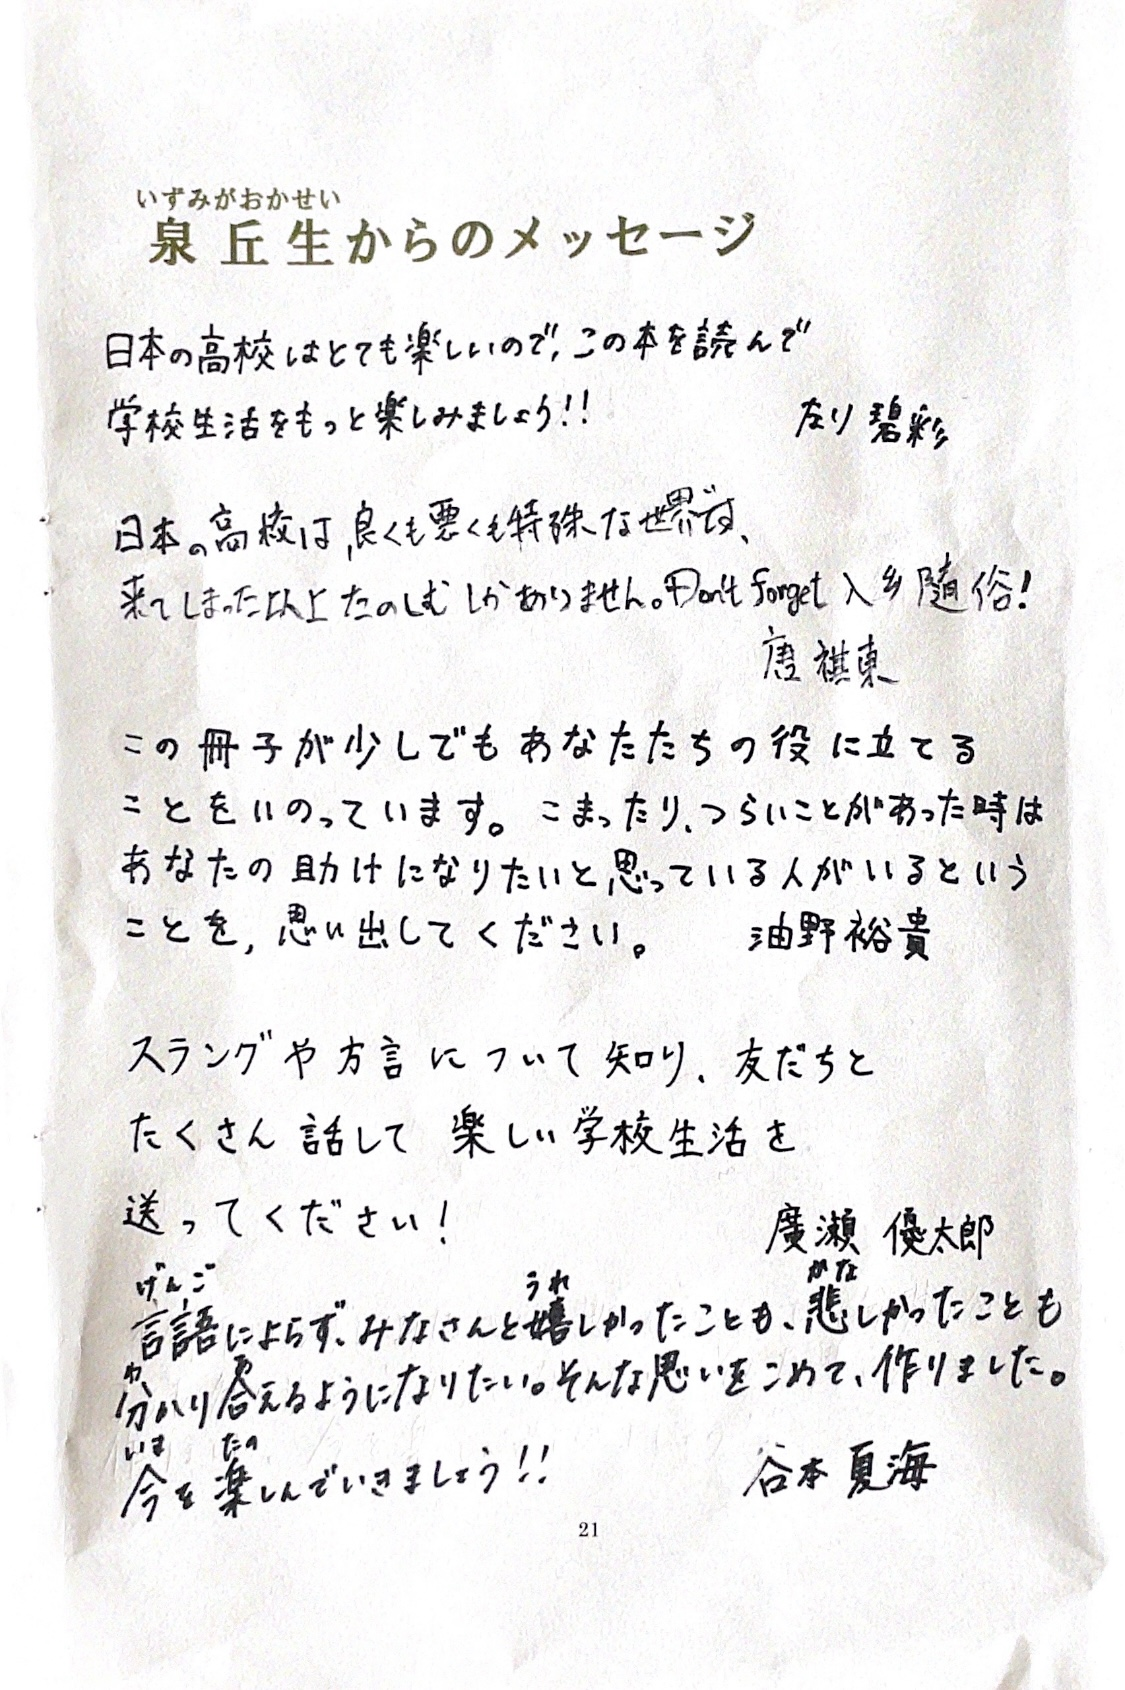 いずみがおかせい
泉丘生からのメッセージ
日本の高校はとても楽しいので、この本を読んで
学校生活をもっと楽しみましょう!!
碧彩
日本の高校は、良くも悪くも特殊な世界です、
来てしまった以上たのしむしかありません。Don't forget 入乡随俗!
唐祺東
この冊子が少しでもあなたたちの役に立てる
ことをいのっています。こまったり、つらいことがあった時は
あなたの助けになりたいと思っている人がいるという
ことを、思い出してください。 油野裕貴
スラングや方言について知り、友だちと
たくさん話して楽しい学校生活を
送ってください!
廣瀬 優太郎
げんご うれ かな
言語によらず、みなさんと嬉しかったことも、悲しかったことも
わ あ
分かり合えるようになりたい。そんな思いをこめて、作りました。
いま たの
今を楽しんでいきましょう!!
谷本夏海
21